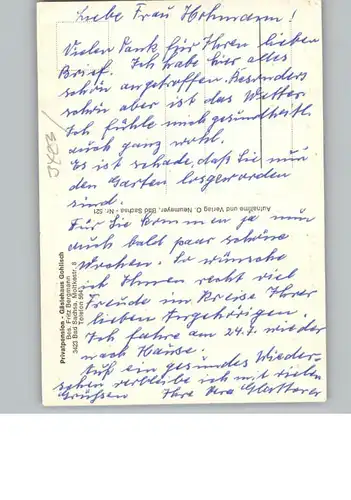 Liebe Frau Hohmann!
Vielen Dank für Ihren lieben
Brief. Ich habe hier alles
schön angetroffen. Besonders
schön aber ist das Wetter.
Ich fühle mich gesundheitl.
auch ganz wohl.
Es ist schade, daß Sie nun
den Garten losgeworden
sind.
Für Sie kommen ja nun
auch bald paar schöne
Wochen. So wünsche
ich Ihnen recht viel
Freude im Kreise Ihrer
lieben Angehörigen.
Ich fahre am 24.7. wieder
nach Hause.
Auf ein gesundes Wieder-
sehen verbleibe ich mit vielen
Grüßen Ihre Vera
Privatpension - Gästehaus Gohlisch
Bes. Fritz Bergmann
3423 Bad Sachsa, Moltkestr. 8
Telefon 564
Aufnahme und Verlag O. Neumeyer, Bad Sachsa Nr. 521